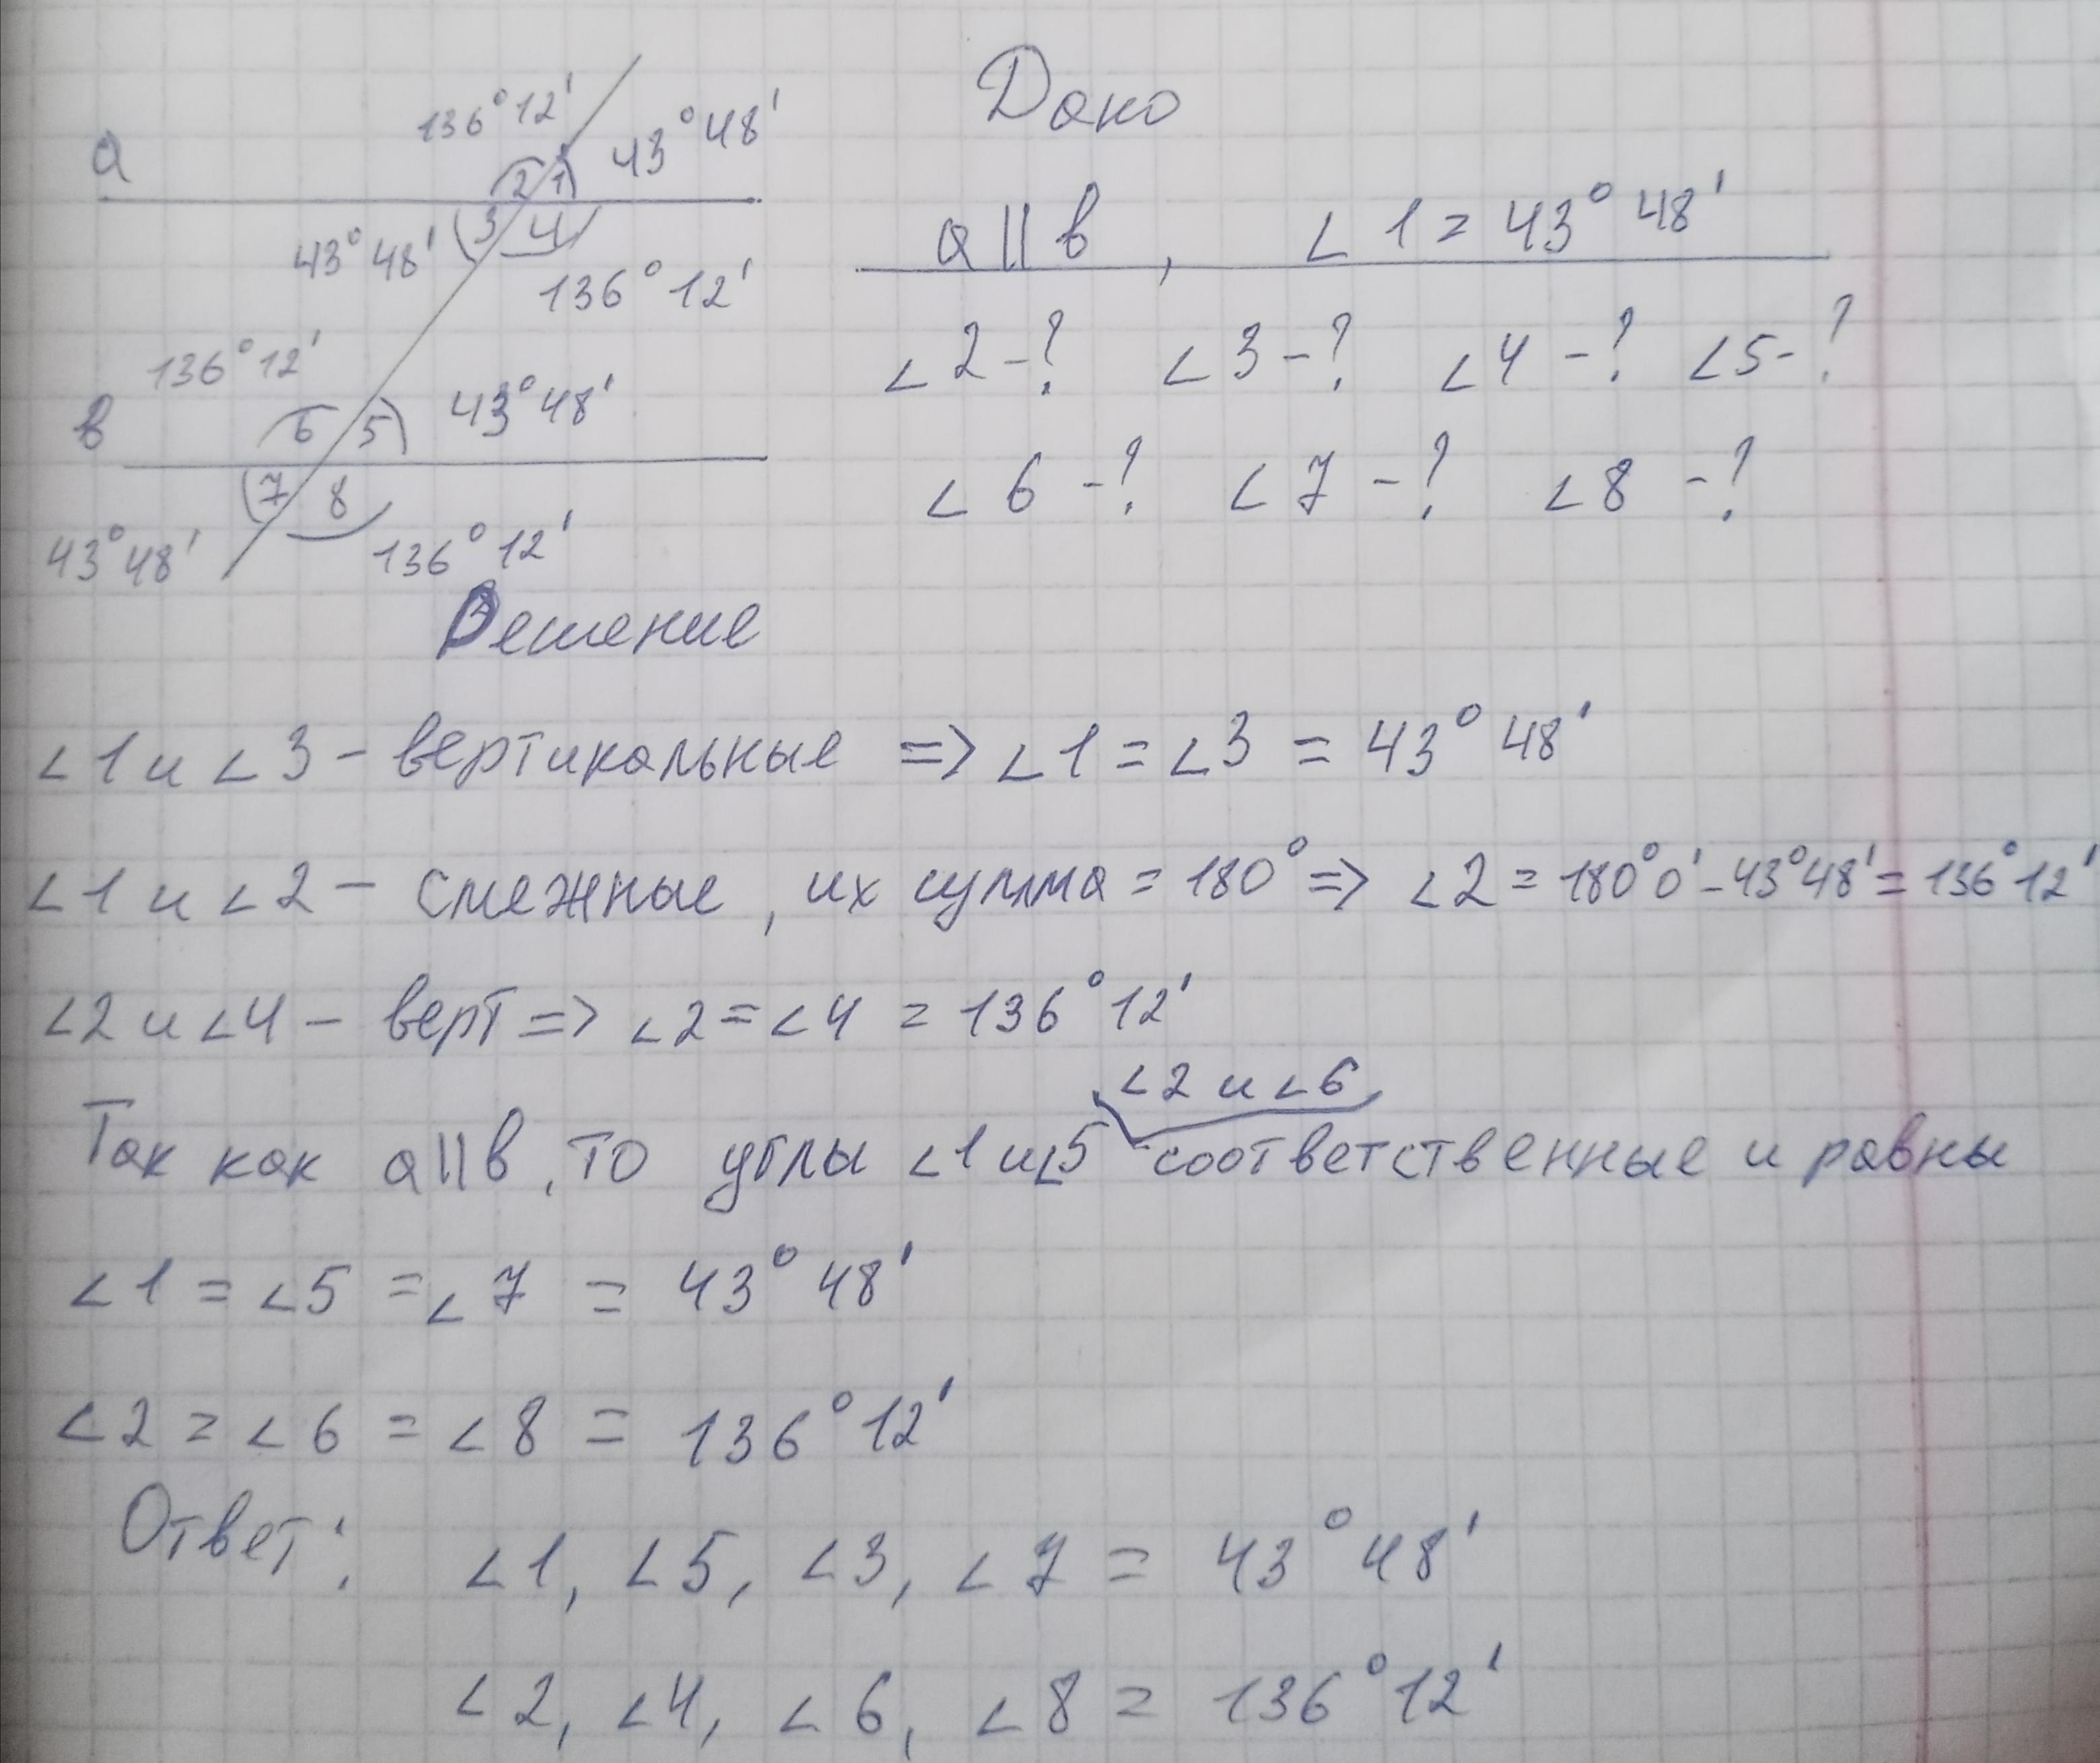 136°12'
Дано
а
43°48'
2 1
3 4
43°48'
136°12'
а || в, ∠1 = 43°48'
∠2-? ∠3-? ∠4-? ∠5-?
136°12'
43°48'
в
6 5
7 8
43°48'
136°12'
∠6-? ∠7-? ∠8-?
Решение
∠1 и ∠3 - вертикальные => ∠1 = ∠3 = 43°48'
∠1 и ∠2 - смежные, их сумма = 180° => ∠2 = 180°0' - 43°48' = 136°12'
∠2 и ∠4 - верт => ∠2 = ∠4 = 136°12'
∠2 и ∠6
Так как а || в, то углы ∠1 и ∠5 соответственные и равны
∠1 = ∠5 = ∠7 = 43°48'
∠2 = ∠6 = ∠8 = 136°12'
Ответ: ∠1, ∠5, ∠3, ∠7 = 43°48'
∠2, ∠4, ∠6, ∠8 = 136°12'